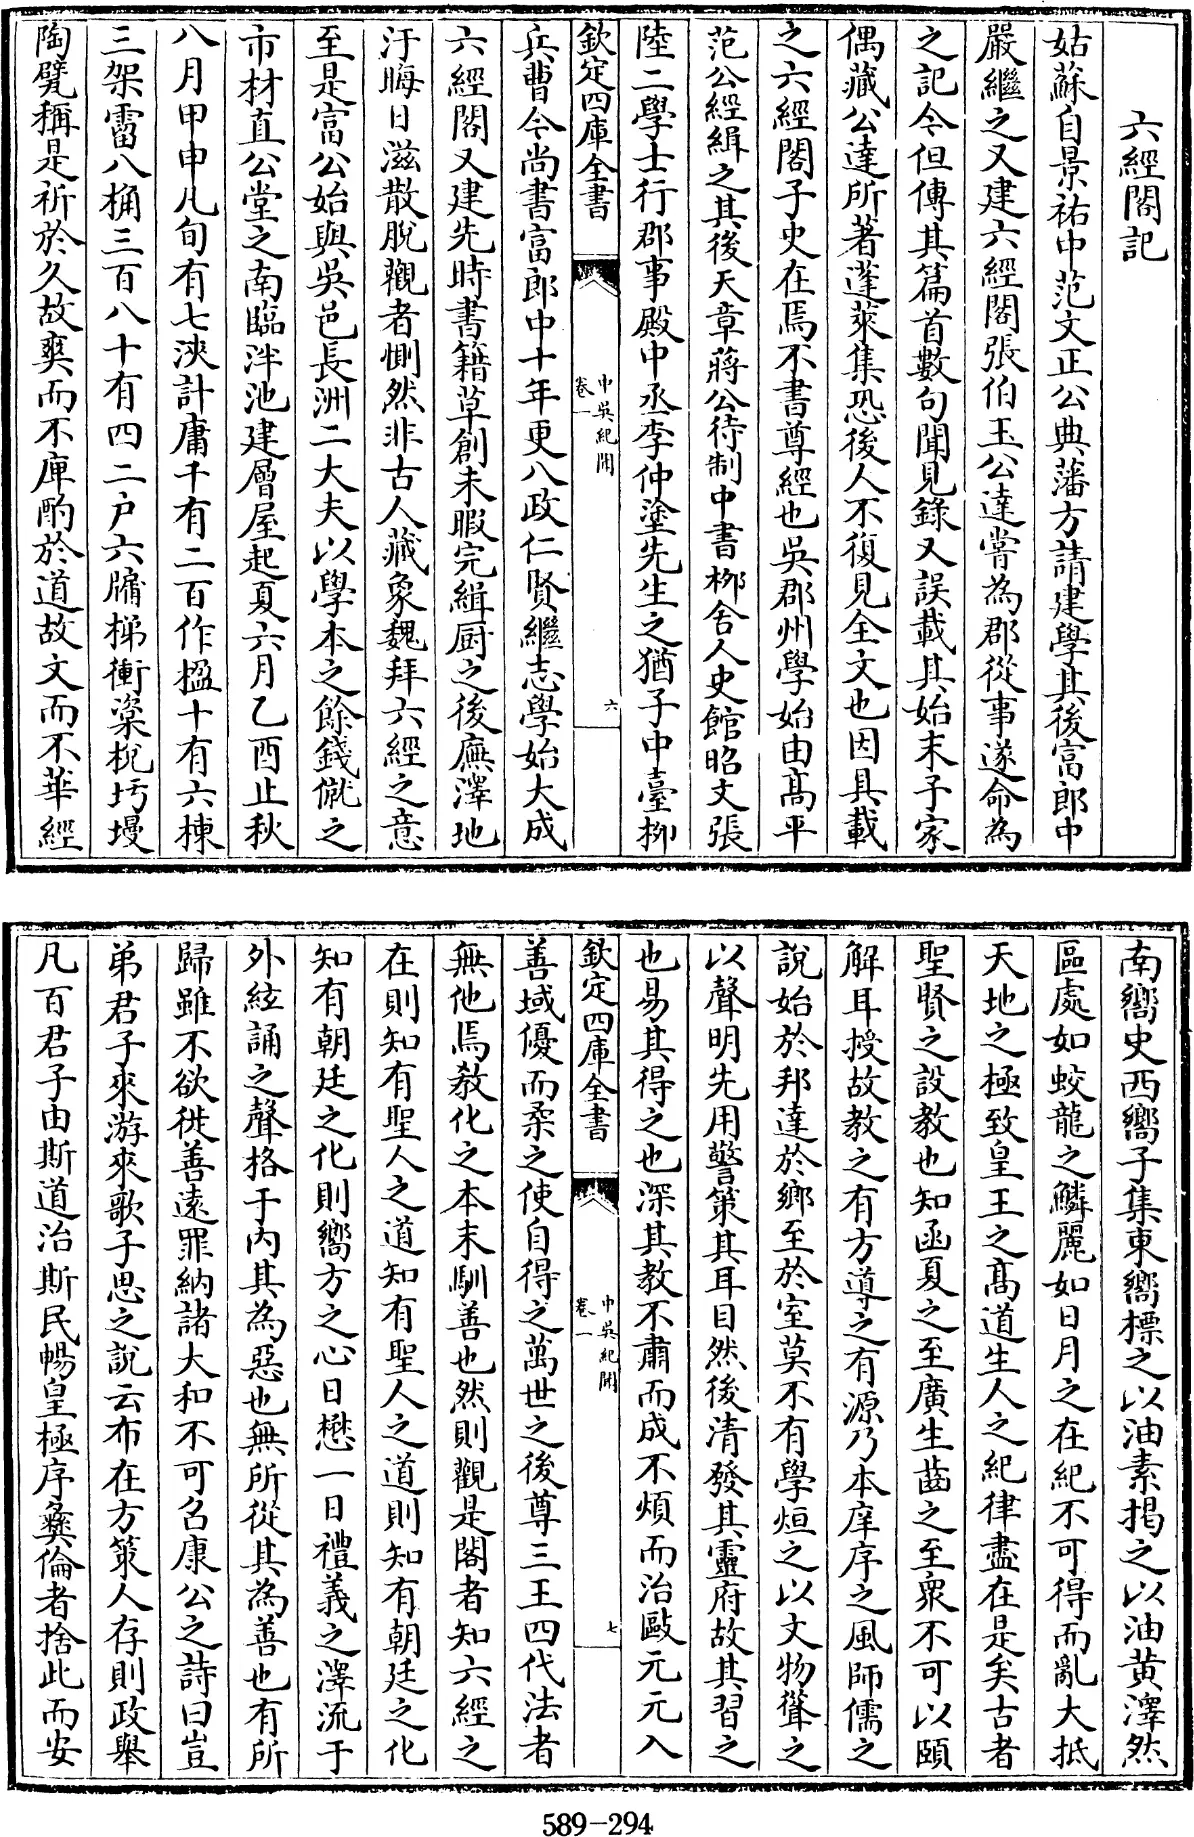 六經閣記
姑蘇自景祐中范文正公典藩方請建學其後富郎中
嚴繼之又建六經閣張伯玉公達嘗為郡從事遂命為
之記今但傳其篇首數句聞見錄又誤載其始末予家
偶藏公達所著蓬萊集恐後人不復見全文也因具載
之六經閣子史在焉不書尊經也吳郡州學始由髙平
范公經緝之其後天章蔣公待制中書栁舍人史館昭文張
陸二學士行郡事殿中丞李仲塗先生之猶子中臺栁
欽定四庫全書
中吳紀聞
卷一
六
兵曹今尚書富郎中十年更八政仁賢繼志學始大成
六經閣又建先時書籍草創未暇完緝厨之後廡澤地
汙晦日滋散脫觀者惻然非古人藏象魏拜六經之意
至是富公始與吳邑長洲二大夫以學本之餘錢僦之
市材直公堂之南臨泮池建層屋起夏六月乙酉止秋
八月甲申凡旬有七浹計庸千有二百作楹十有六棟
三架霤八桷三百八十有四二户六牖梯衝粢梲圬墁
陶甓稱是祈於久故爽而不庳酌於道故文而不華經
南嚮史西嚮子集東嚮標之以油素揭之以油黄澤然
區處如蛟龍之鱗麗如日月之在紀不可得而亂大抵
天地之極致皇王之髙道生人之紀律盡在是矣古者
聖賢之設教也知函夏之至廣生齒之至衆不可以頤
解耳授故教之有方導之有源乃本庠序之風師儒之
說始於邦達於鄉至於室莫不有學烜之以文物聳之
以聲明先用警策其耳目然後清發其靈府故其習之
也易其得之也深其教不肅而成不煩而治歐元元入
欽定四庫全書
中吳紀聞
卷一
七
善域優而柔之使自得之萬世之後尊三王四代法者
無他焉教化之本末馴善也然則觀是閣者知六經之
在則知有聖人之道知有聖人之道則知有朝廷之化
知有朝廷之化則嚮方之心日懋一日禮義之澤流于
外絃誦之聲格于内其為惡也無所從其為善也有所
歸雖不欲徙善遠罪納諸大和不可召康公之詩曰豈
弟君子來游來歌子思之說云布在方策人存則政舉
凡百君子由斯道治斯民暢皇極序彝倫者捨此而安
589-294